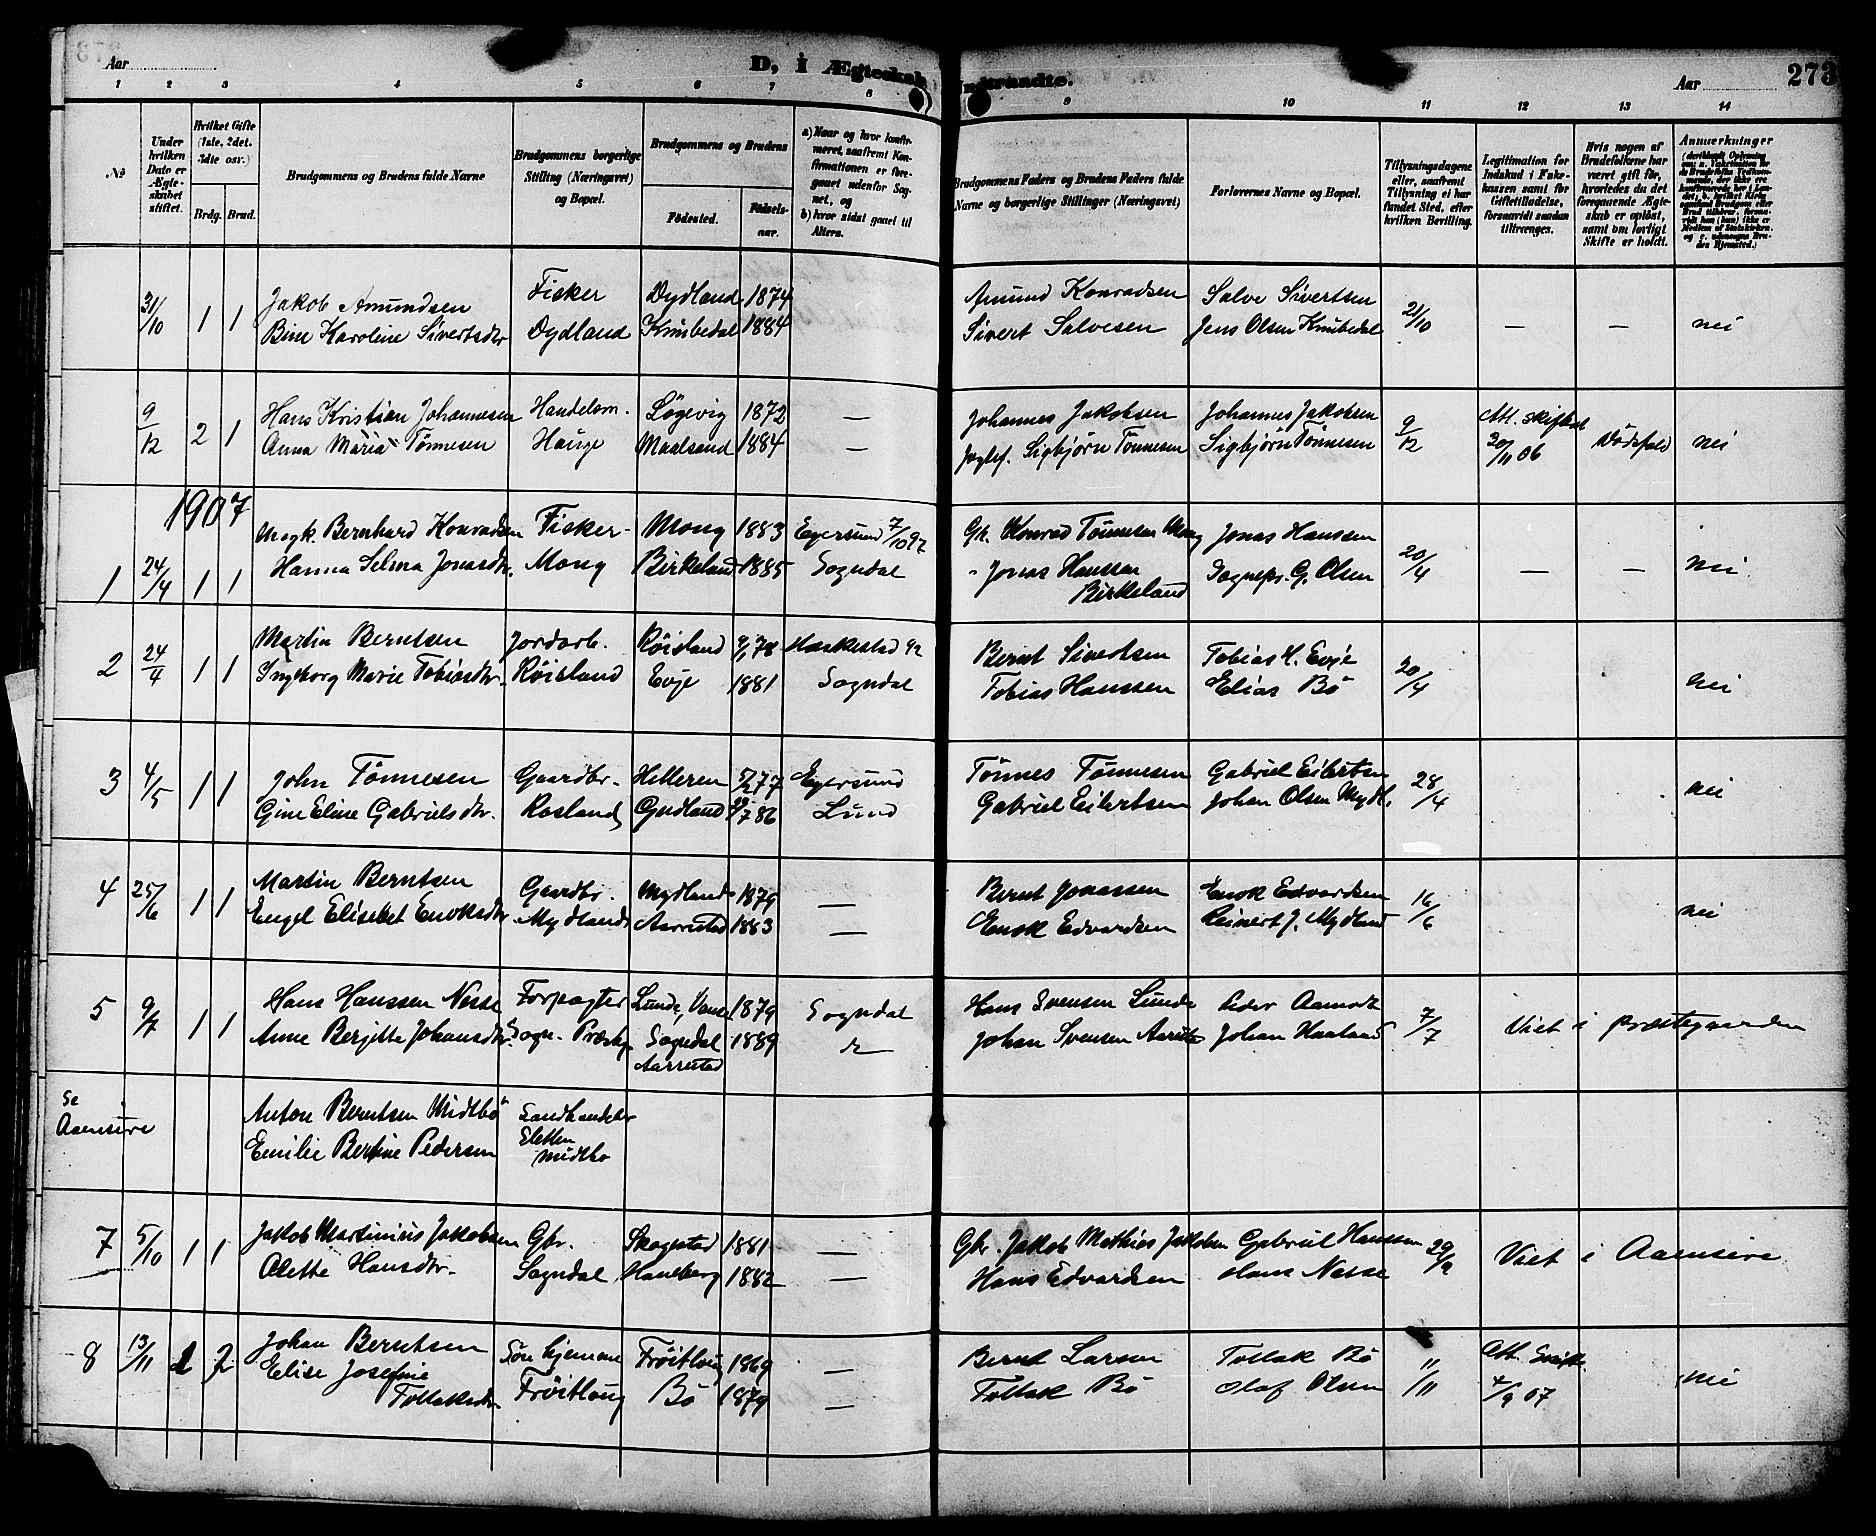 Aar
D, i Ægteskab Indtraadte.
Aar
273
1 2 3 4 5 6 7 8 9 10 11 12 13 14
No
Under hvilken Dato er Ægteskabet stiftet.
Hvilket Gifte (1ste, 2det, 3die osv.)
Brdg. Brud.
Brudgommens og Brudens fulde Navne
Brudgommens borgerlige Stilling (Næringsvei) og Bopæl.
Brudgommens og Brudens
Fødested.
Fødselsaar.
a) Naar og hvor konfirmeret, saafremt Konfirmationen er foregaaet udenfor Sognet, og
b) hvor sidst gaaet til Alters.
Brudgommens Faders og Brudens Faders fulde Navne og borgerlige Stillinger (Næringsvei)
Forlovernes Navne og Bopæl.
Tillysningsdagene eller, saafremt Tillysning ei har fundet Sted, efter hvilken Bevilling.
Legitimation for Indskud i Enkekassen samt for Giftetilladelse, forsaavidt saadan tiltrænges.
Hvis nogen af Brudefolkene har været gift før, hvorledes da det foregaaende Ægteskab er opløst, samt om lovligt Skifte er holdt.
Anmærkninger
31/10 1 1 Jakob Amundsen Fisker Dydland 1874 Amund Konradsen Salve Sivertsen 21/10 — — nei
Bine Karoline Sivertsdtr Dydland Knubedal 1884 Sivert Salvesen Jens Olsen Knubedal
9/12 2 1 Hans Kristian Johannesen Handelsm. Løgevig 1872 — Johannes Jakobsen Johannes Jakobsen 9/12 Att. skifted Dødsfald nei
Anna Maria Tønnesen Hauge Maalsand 1884 — Sigbjørn Tønnesen Sigbjørn Tønnesen 30/11 06
1907
1 24/4 1 1 Ungk. Bernhard Konradsen Fisker Mong 1883 Egersund 7/10 97 Gk. Konrad Tønnesen Mong Jonas Hanssen 20/4 — — nei
Hanna Selma Jonasdtr. Mong Birkeland 1885 Sogndal - Jonas Hanssen Sognepr. G. Olsen
Birkeland
2 24/4 1 1 Martin Berntsen Jordarb. Røisland 9/1 78 92 Bernt Sivertsen Tobias H. Evje 20/4 nei
Ingborg Marie Tobiasdtr. Røisland Evje 1881 Sogndal Tobias Hanssen Elias Bö
3 4/5 1 1 John Tønnesen Gaardbr. Helleren 5/2 77 Egersund Tønnes Tønnesen Gabriel Eilertsen 28/4 nei
Gine Eline Gabrielsdtr. Rosland Gydland 86 Lund Gabriel Eilertsen Johan Olsen Mydl.
4 25/6 1 1 Martin Berntsen Gaardbr. Mydland 1879 — Bernt Jonassen Enok Edvardsen 16/6 nei
Engel Elisabet Enoksdtr Mydland Aarrestad 1883 — Enok Edvardsen Reinert J. Mydland
5 9/7 1 1 Hans Hanssen Nesse Forpagter Lunde, Vanse 1879 Sogndal Hans Svensen Lunde Peder Aamodt 7/7 Viet i præstegaarden
Anne Bergitte Johansdtr. Sogn. Præstg. Sogndal 1889 Johan Svensen Aarrestad Johan Haaland
Aarrestad
Se Anton Berntsen Midtbö Sandhandler
Aamsire Emilie Bertine Pedersen Sletten
Midtbö
7 5/10 1 1 Jakob Martinius Jakobsen Gbr. Skogstad 1881 — Gbr. Jakob Mathias Jakobsen Gabriel Hanssen 29/9 Viet i Aamsire
Olette Hansdtr. Sogndal Hauberg 1882 — Hans Edvardsen Hans Nesse
8 13/11 1 2 Johan Berntsen Søn hjemme Frøitlog 1869 Bernt Larsen Tollak Bö 11/11 Att. Skifte nei
Elise Josefine Frøitlog Bö 1879 — Tollak Bö Olaf Olsen 4/9 07
Tollaksdtr